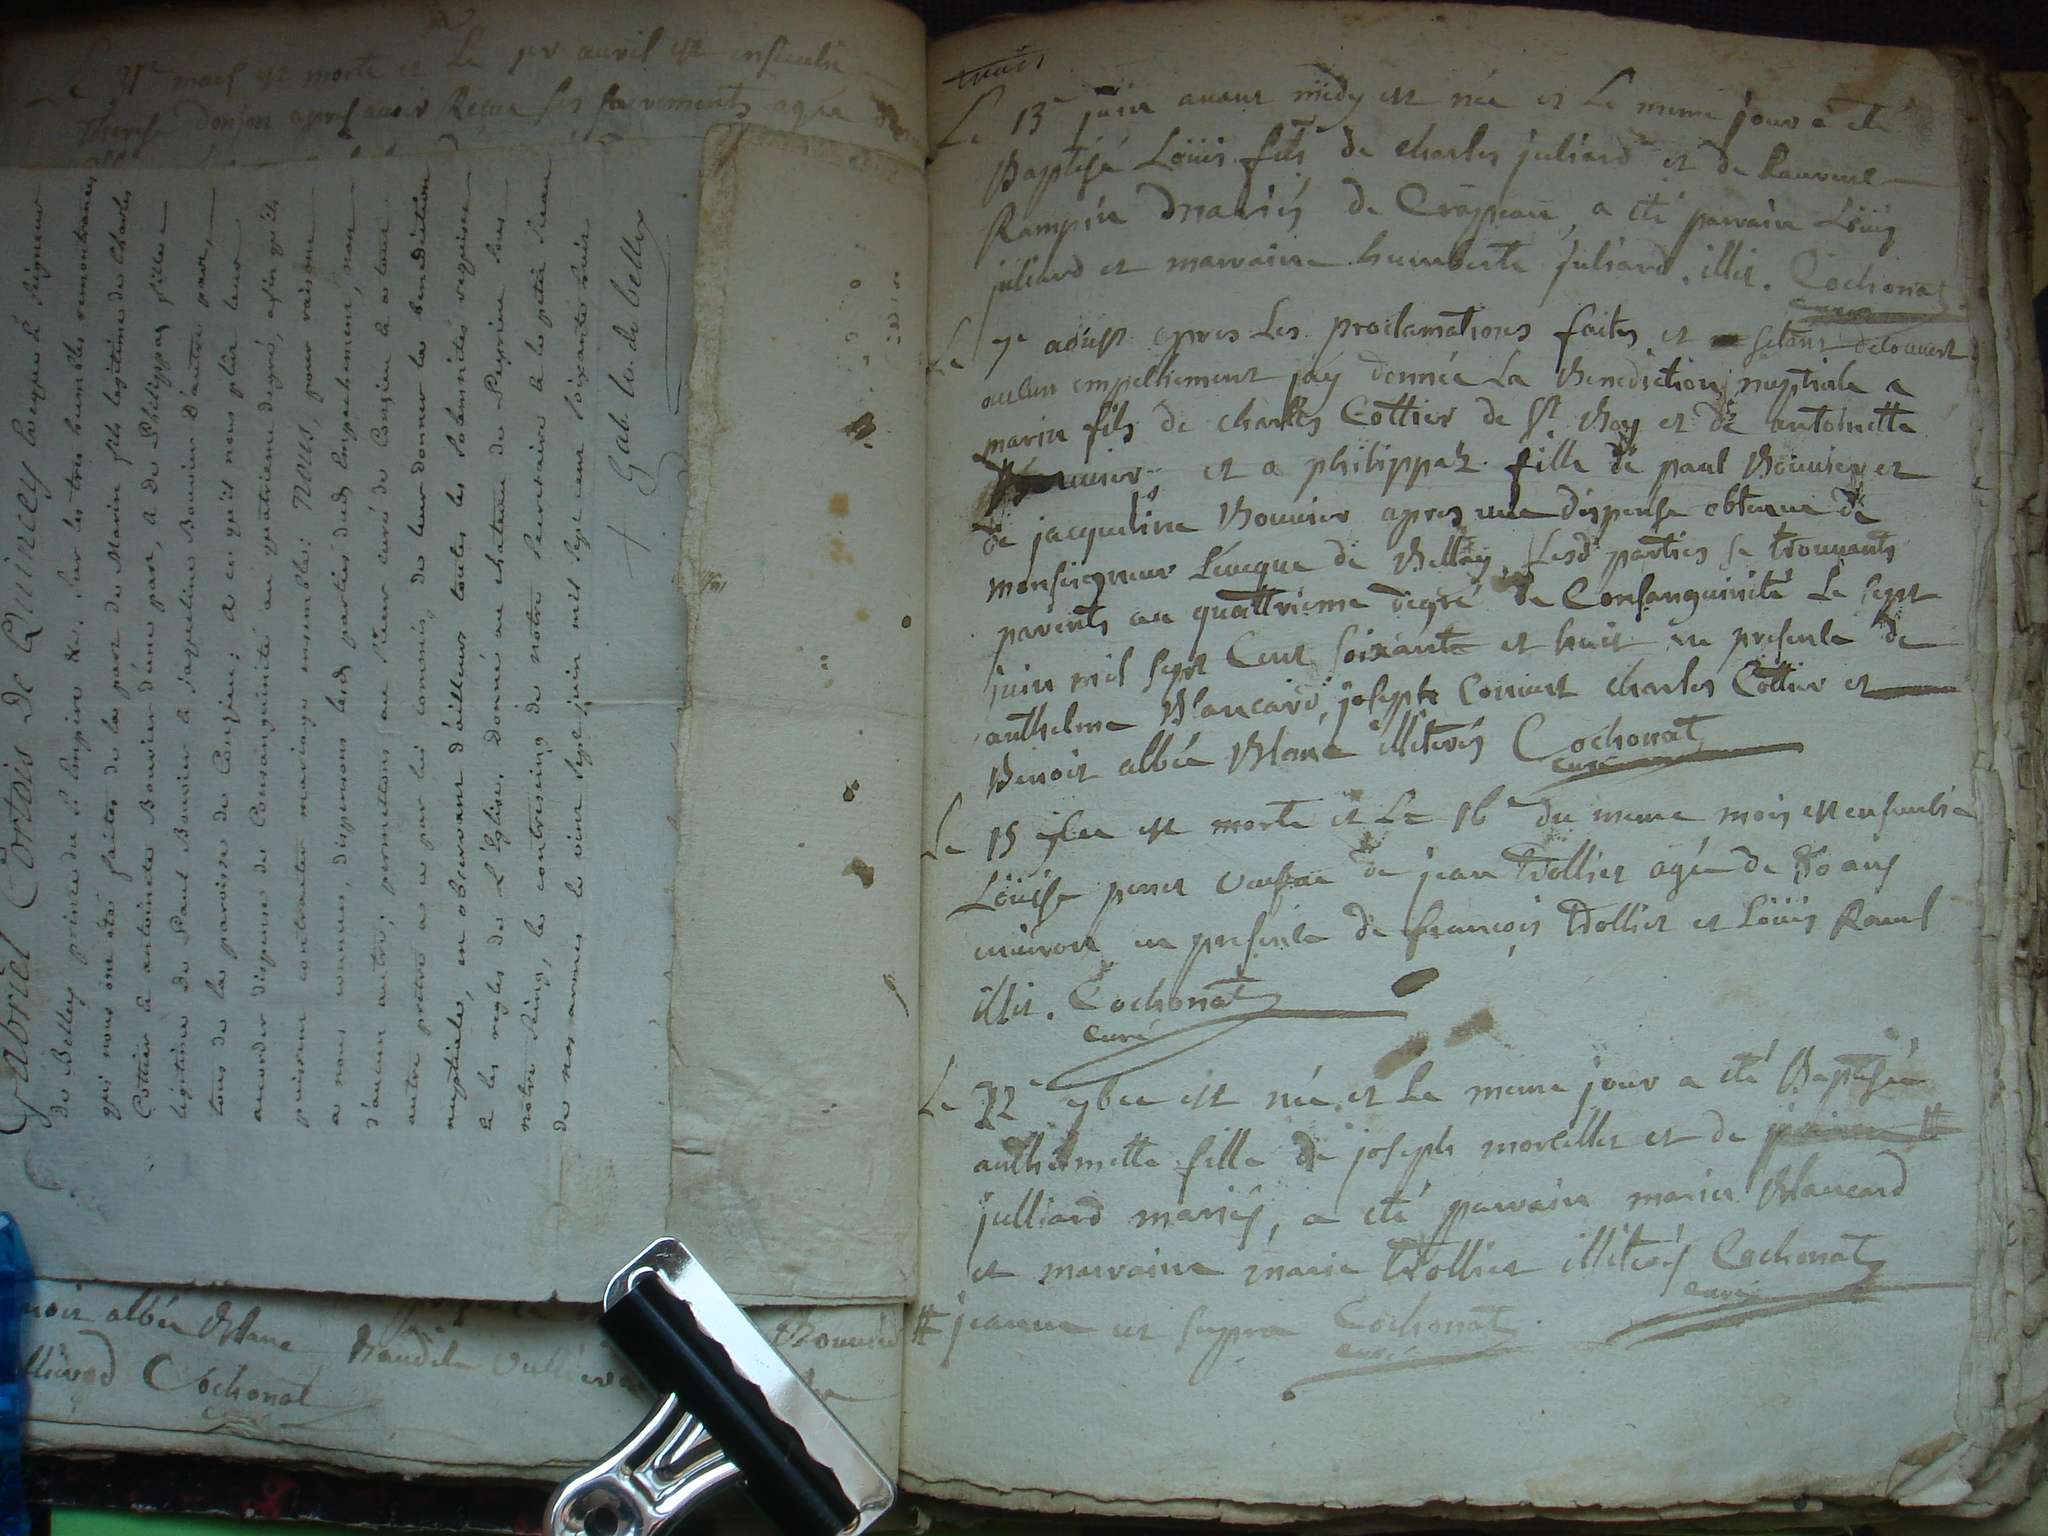 Le 31e mars est morte et Le 1er avril est ensevelie
therese donjon apres avoir Reçue ses sacrements agée
Gabriel Cortois De Quincey Evêque & Seigneur
de Belley prince du St Empire &c. Sur les tres humbles remontrances
qui nous ont été faites de la part de Marin fils legitime de Charles
Cottier & antoinette Bouvier d'une part, & de Philippaz fille
legitime de Paul Bouvier & Jaqueline Bouvier D'autre part,
tous de la paroisse de Conzieu; a ce qu'il nous plût leur
accorder dispense de Consanguinité au quatrieme degré, afin qu'ils
puissent contracter mariage ensemble: NOUS, pour raisons
a nous connues, dispensons lesd. parties dud. Empechement, non
d'aucun autre; permettons au Sieur curé de Conzieu & a tout
autre prêtre a ce par lui commis, de leur donner la benediction
nuptiale, en observant d'ailleurs toutes les solemnités requises
& les regles de L'Eglise. Donné au chateau de Peyrieu sous
notre Seing, le contreseing de notre Secretaire & le petit Sceau
de nos armes le vint sept juin mil sept cent soixante huit
+ Gab. ev. de belley
noit albée Blanc Baudile Bouvier
Cochonat
curé
Le 13e juin avant midy est née et Le meme jour a eté
Baptisé Loüis fils de charles juliard et de Laurence
Rampin mariés de Crapeau, a eté parrain Loüis
juliard et marraine humberte juliard. illit. Cochonat
curé
Le 7e aoust apres Les proclamations faites et setant decouvert
aucun empechement jay donnée La Benediction nuptiale a
marin fils de charles Cottier de St Boy et de antoinette
Bouvier et a philippaz fille de paul Bouvier et
de jacqueline Bouvier apres une dispense obtenue de
monseigneur Léveque de Belley, Lesd parties se trouvants
parents au quattrieme degré de Consanguinité Le sept
juin mil sept Cent soixante et huit en presence de
anthelme Blancard, joseph Convert charles Cottier et
Benoit albée Blanc illiterés Cochonat
curé
Le 15 est morte et Le 16e du meme mois est ensevelie
Loüise veufve de jean trollier agée de 80 ans
environ en presence de françois trollier et Loüis Ravel
illit. Cochonat
curé
Le 22e 9bre est née et Le meme jour a eté Baptisée
anthelmette fille de joseph morcillet et de #
julliard mariés, a eté parrain marin Blancard
et marraine marie trollier illiterés Cochonat
curé
# jeanne ut supra Cochonat
curé